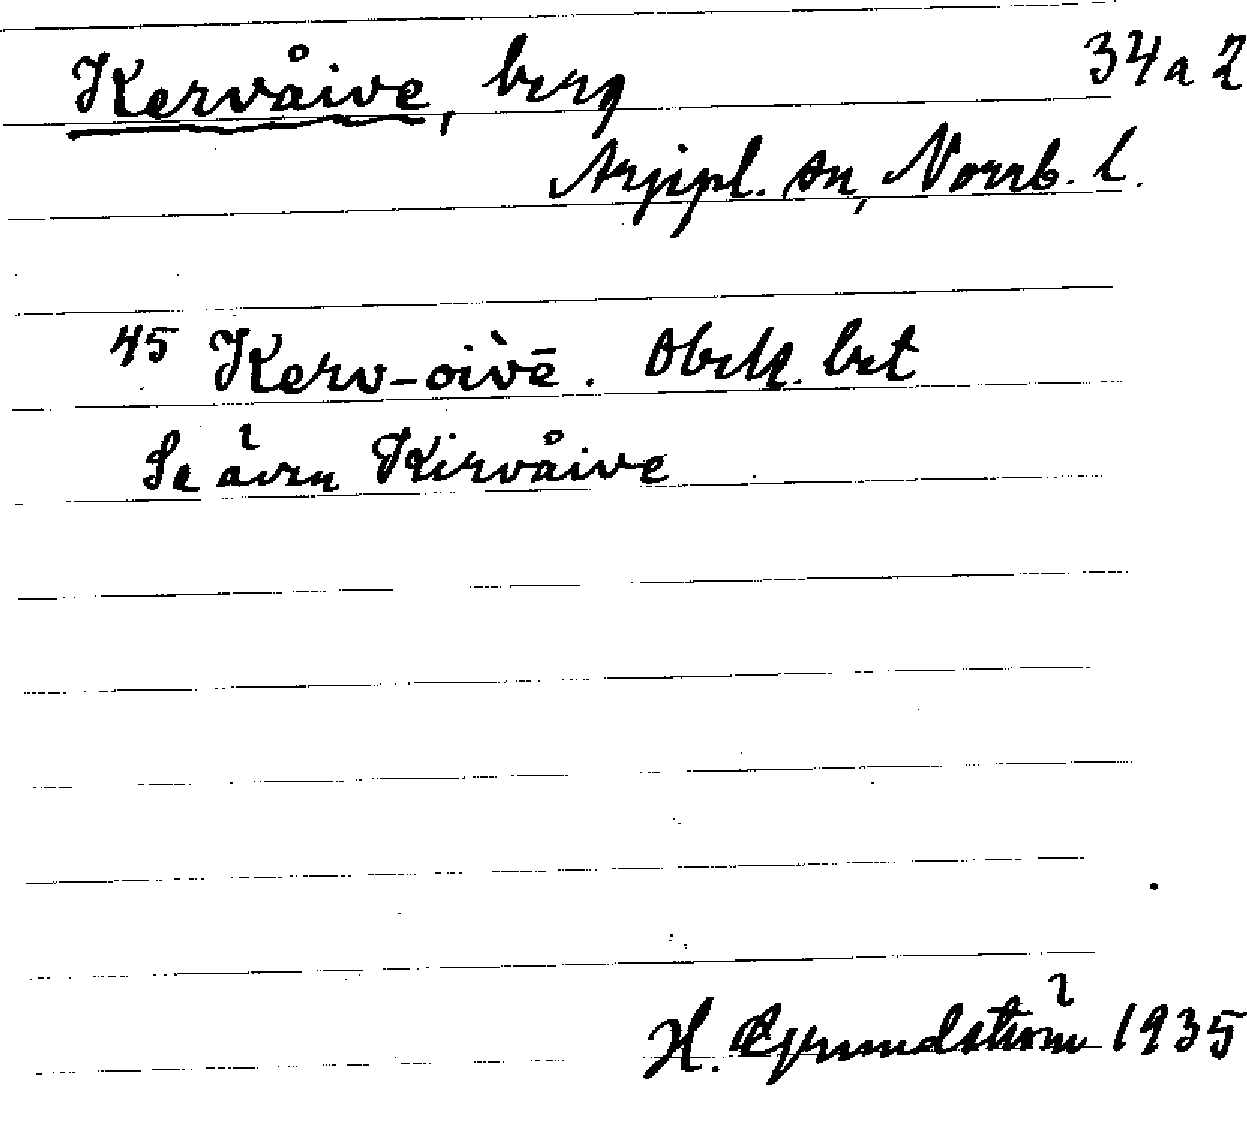 Kervåive, berg 34a2
Arjepl. sn, Norrb. l.
45 Kerv-oìvē. Obek. bet
Se även Kirvåive
H. Grundström 1935